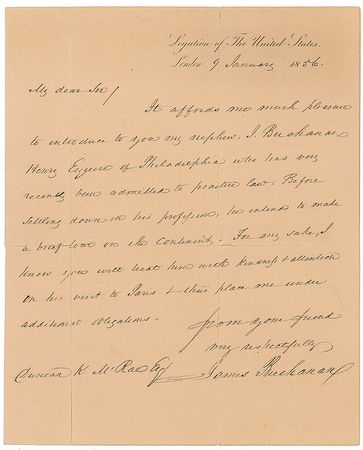 Legation of The United States.
London 9 January 1856.
My dear Sir/
It affords me much pleasure
to introduce to you my nephew, J. Buchanan
Henry Esquire of Philadelphia who has very
recently been admitted to practice law. Before
settling down in his profession, he intends to make
a brief tour on the Continent. For my sake, I
know you will treat him with kindness & attention
on his visit to Paris & thus place me under
additional obligations.
from your friend
very respectfully
James Buchanan
Duncan K. McRae Esq